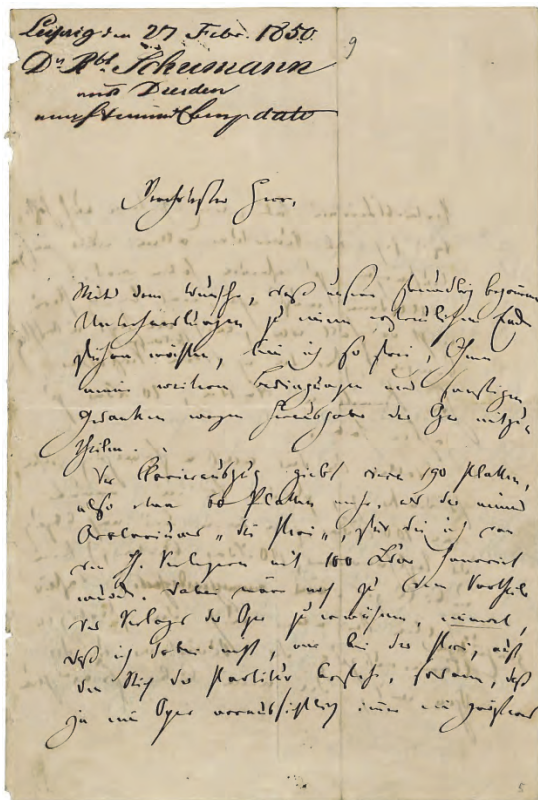 Leipzig den 27 Febr. 1850.
9
Dr Rbt Schumann
aus Dresden
empf dato
Verehrtester Herr,
Mit dem Wunsche, daß unsere freundlich begonnenen
Unterhandlungen zu einem erfreulichen Ende
führen möchten, bin ich so frei, Ihnen
meine weiteren Bedingungen und sonstigen
Gedanken wegen Herausgabe der Oper mitzu-
theilen.
Der Clavierauszug giebt circa 190 Platten,
also etwa 60 Platten mehr, als der meines
Oratoriums „die Peri“, für die ich von
den H. Verlegern mit 100 Ldor honorirt
wurde. Dabei wäre noch zu dem Vortheil
des Verlags der Oper zu erwähnen, einmal,
daß ich dabei nicht, wie bei der Peri, auf
den Stich der Partitur bestehe, sodann, daß
ja eine Oper voraussichtlich immer ein größeres
5